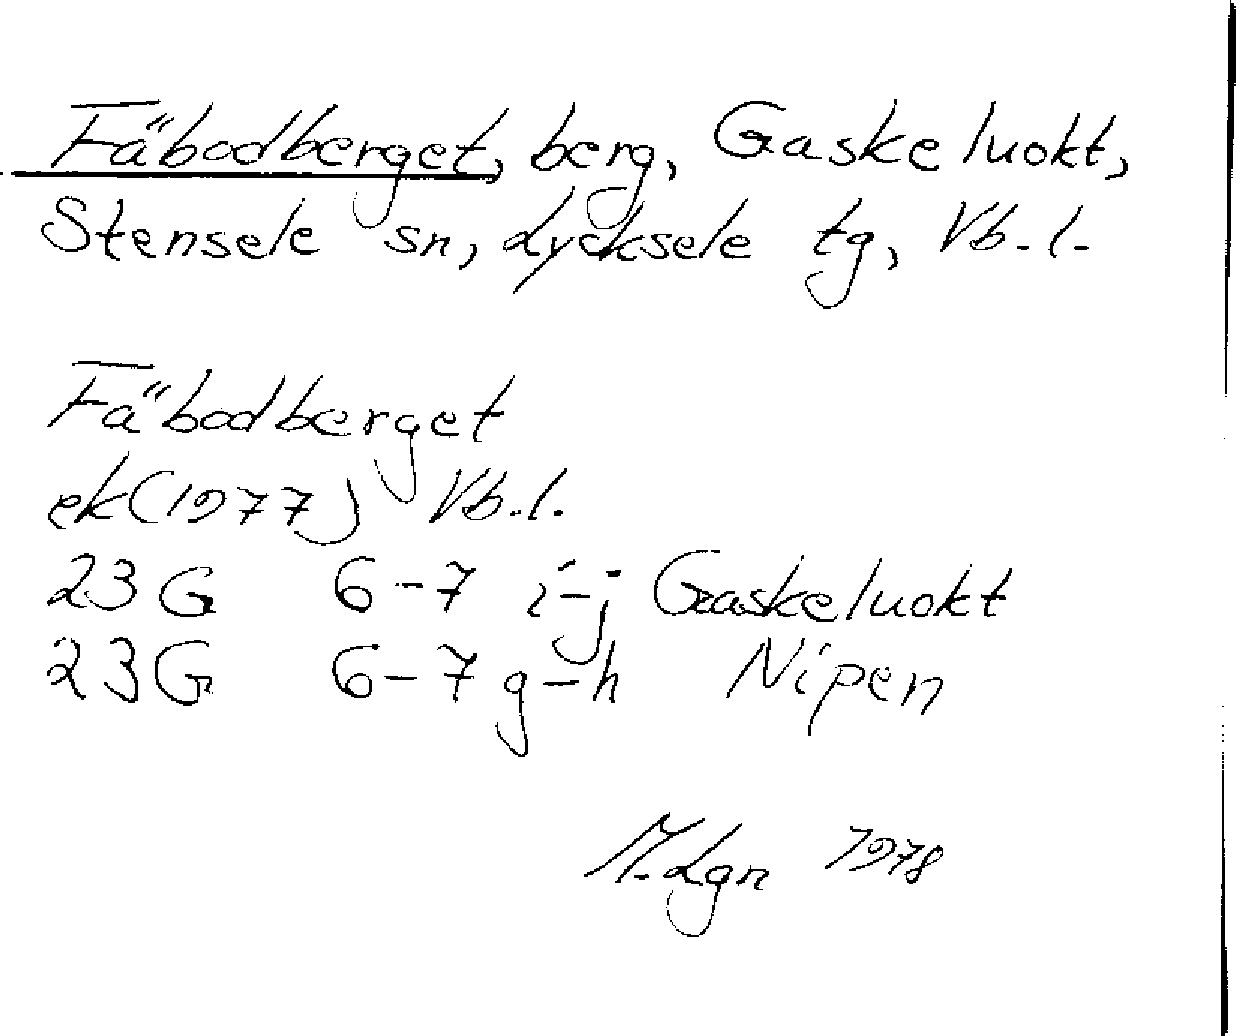 Fäbodberget, berg, Gaskeluokt,
Stensele sn, Lycksele tg, Vb.l.
Fäbodberget
ek(1977) Vb.l.
23G 6-7 i-j Gaskeluokt
23G 6-7 g-h Nipen
M.Lgn 1978